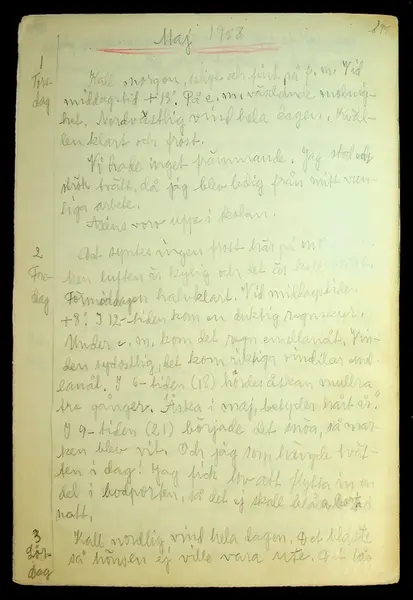 Maj 1958
1
Tors-
dag
Kall morgon, soligt och fint på f. m. Vid
middagstid +15°. På e. m. växlande molnig-
het. Nordvästlig vind hela dagen. Kväl-
len klart och frost.
Vi hade inget främmande. Jag stod och
strök tvätt, då jag blev ledig från mitt van-
liga arbete.
voro uppe i skolan.
2
Fre-
dag
Det syntes ingen frost här på m
ken luften är kylig och det är kallt
Förmiddagen halvklart. Vid middagstiden
+8°. I 12-tiden kom en duktig regnskur.
Under e. m. kom det regn emellanåt. Vin-
den sydostlig, det kom riktiga vindilar emel-
lanåt. I 6-tiden (18) hördes åskan mullra
tre gånger. "Åska i maj, betyder hårt år."
I 9-tiden (21) började det snöa, så mar-
ken blev vit. Och jag som hängde tvät-
ten i dag! Jag fick lov att flytta in en
del i bodporten, så det ej skall blåsa bort i
natt.
3
Lör-
dag
Kall nordlig vind hela dagen. Det blåste
så hönsen ej ville vara ute. Det